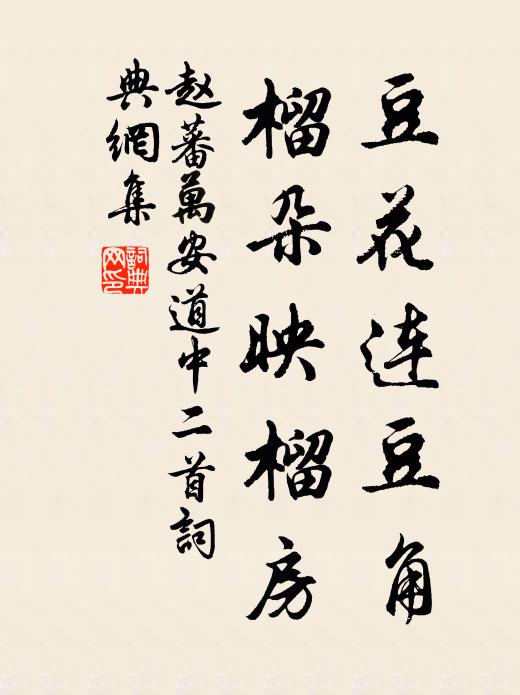 豆花连豆角
榴朵映榴房
赵蕃萬安道中二首詞
典網集
詞典網印